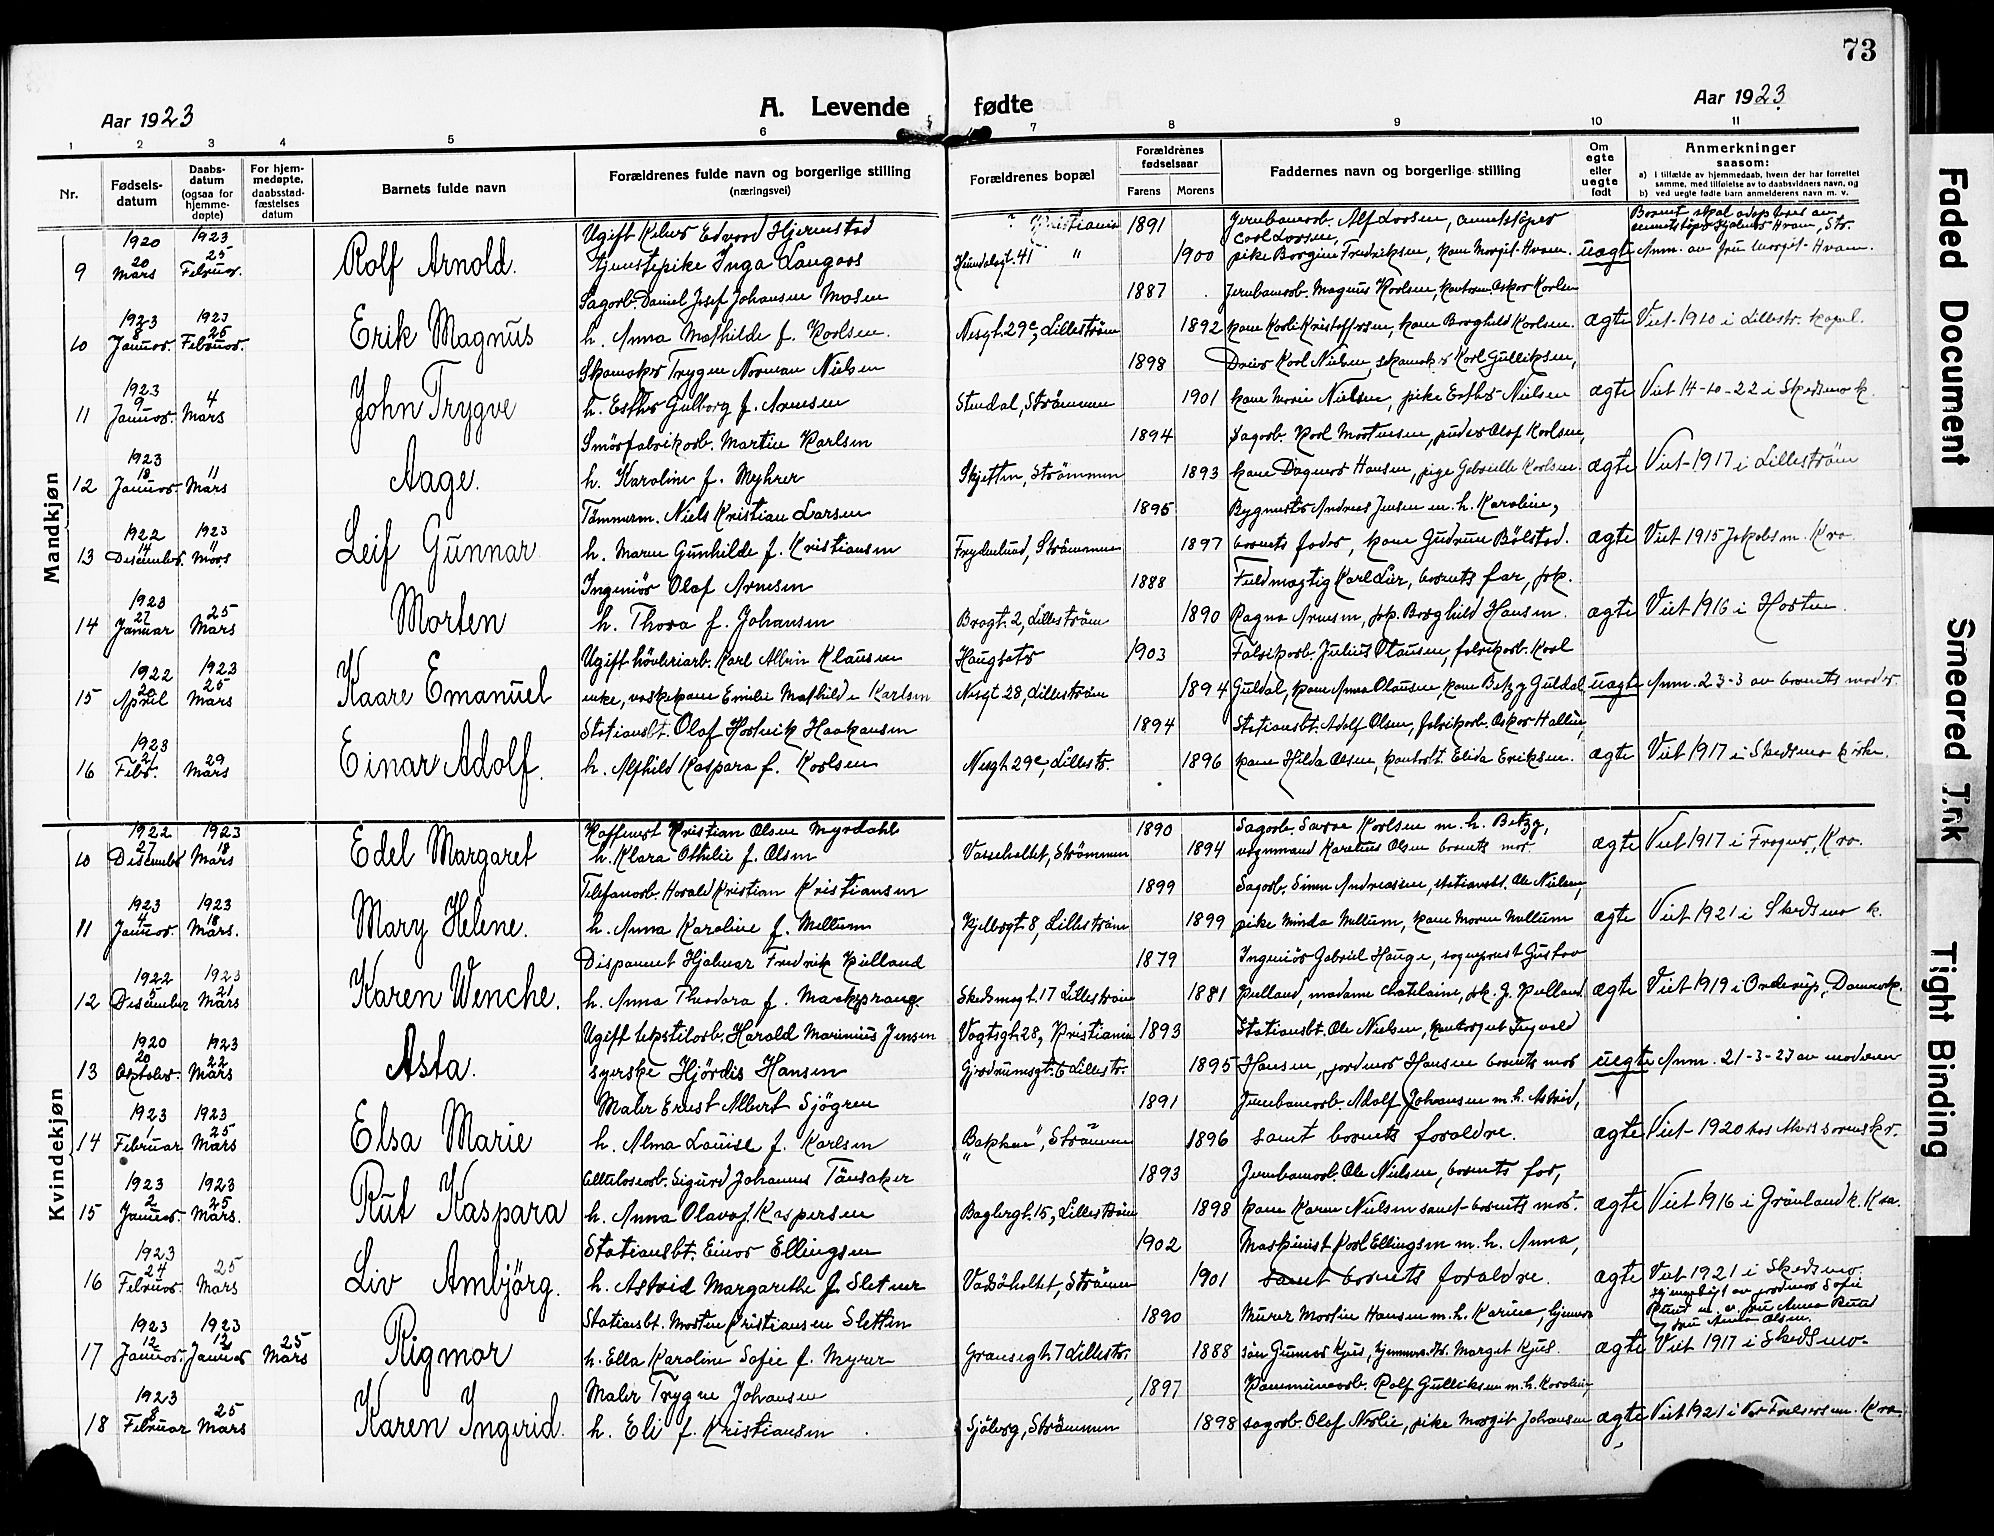 73
Aar 1923
A. Levende fødte
Aar 1923
1 2 3 4 5 6 7 8 9 10 11
Nr.
Fødsels-
datum
Daabs-
datum
(ogsaa for
hjemme-
døpte)
For hjem-
medøpte,
daabsstad-
fæstelses
datum
Barnets fulde navn
Forældrenes fulde navn og borgerlige stilling
(næringsvei)
Forældrenes bopæl
Forældrenes
fødselsaar
Farens Morens
Faddernes navn og borgerlige stilling
Om
egte
eller
uegte
født
Anmerkninger
saasom:
a) i tilfælde av hjemmedaab, hvem der har forrettet
samme, med tilføielse av to daabsvidners navn, og
b) ved uegte fødte barn anmelderens navn m. v.
Mandkjøn
1920 1923 Ugift Edvard Hjermstad Kristiania 1891 Jernbanearb. Alf Larsen,
9 20 Mars 25 Februar. Rolf Arnold. tjenestepike Inga Langaas 41 " 1900 pike Borgine Fredriksen, kone Margit Hvam. uagte Anm. av fru Margit Hvam.
Sagarb. Daniel Josef Johansen Mosen 1887 Jernbanearb. Magnus Karlsen, Oskar Karlsen
10 1923 8 Januar. 1923 25 Februar. Erik Magnus h. Anna Mathilde f. Karlsen. Nesgt. 29c, Lilleström 1892 kone Kristoffersen, kone Borghild Karlsen. ægte Viet 1910 i Lillestr. kapel.
Skomaker Trygve Norman Nielsen 1898 Karl Nielsen, skomaker Karl Gulliksen,
11 1923 9 Januar. 4 Mars John Trygve h. Esther Gulborg f. Arnesen Stendal, Strömmen 1901 kone Marie Nielsen, pike Esther Nielsen ægte Viet 14-10-22 i Skedsmo k.
Smörfabrikarb. Martin Karlsen 1894 Sagarb. Karl Mortensen, Olaf Karlsen,
12 1923 18 Januar. 11 Mars Aage. h. Karoline f. Myhrer Skjetten, Strömmen 1893 kone Dagmar Hansen, pige Gabrielle Karlsen. ægte Viet 1917 i Lilleström
Tömmerm. Niels Kristian Larsen 1895 Bygmester Andreas Jensen m. h. Karoline,
13 1922 14 Desember. 1923 11 Mars Leif Gunnar h. Maren Gunhilde f. Kristiansen Frydenlund, Strömmen 1897 barnets fader, kone Gudrun Bölstad. ægte Viet 1915 Jakobs m. Kra.
Ingeniör Olaf Arnesen 1888 Fuldmægtig Karl Lür, barnets far, frk.
14 1923 27 Januar 25 Mars Morten h. Thora f. Johansen Brogt. 2, Lilleström 1890 Ragna Arnesen, frk. Borghild Hansen. ægte Viet 1916 i Horten
Ugift hövleriarb. Karl Albin Klausen Haugsets 1903 Fabrikarb. Julius Olausen, fabrikarb. Karl
15 1922 20 April 1923 25 Mars Kaare Emanuel enke, vaskekone Emilie Mathilde Karlsen Nesgt 28, Lilleström 1894 Guldal, kone Anna Olausen, kone Betzy Guldal uagte Anm. 23-3 av barnets moder.
Stationsbt. Olaf Haakansen 1894 Stationsbt. Adolf Olsen, fabrikarb. Oskar Hallin,
16 1923 2 Febr. 29 Mars Einar Adolf. h. Alfhild Kaspara f. Karlsen Nesgt. 29c, Lillestr. 1896 kone Hilda Olsen, Elida Eriksen. ægte Viet 1917 i Skedsmo kirke.
Kvindekjøn
Kaffevert Kristian Olsen Myrdahl 1890 Sagarb. Karlsen m. h. Betzy,
10 1922 27 Desember 1923 18 Mars Edel Margaret h. Klara Othilie f. Olsen Vasseholtet, Strömmen 1894 vognmand Karelius Olsen barnets mor. ægte Viet 1917 i Frogner, Kra.
Telefonarb. Harald Kristian Kristiansen 1899 Sagarb. Simen Andreassen, stationsbt. Ole Nielsen,
11 1923 4 Januar. 1923 18 Mars. Mary Helene. h. Anna Karoline f. Mellum Kjelbergt 8, Lilleström 1899 pike Minda Mellum, kone Maren Mellum ægte Viet 1921 i Skedsmo k.
Disponent Hjalmar Fredrik Hilland 1879 Ingeniör Gabriel Hauge, sogneprest Gustav
12 1922 5 Desember 1923 21 Mars Karen Wenche. h. Anna Theodora f. Mackeprang. Skedsmogt. 17 Lilleström 1881 madame Chatelaine, frk. J. ægte Viet 1919 i Ordrup, Danmark.
Ugift tekstilarb. Harald Marinius Jensen Vogtsgt. 28, Kristiania 1893 Stationsbt. Ole Nielsen,
13 1920 20 Oktober. 1923 22 Mars Asta. syerske Hjördis Hansen Gjerdrumsgt. 6 Lillestr. 1895 Hansen, jordmor Hansen barnets mor uegte Anm. 21-3-23 av moderen
Maler Ernst Albert Sjögren 1891 Jernbanearb. Adolf Johansen m. h. Astrid,
14 1923 1 Februar 1923 25 Mars Elsa Marie h. Alma Louise f. Karlsen "Bakken", Strömmen 1896 samt barnets foraldre. ægte Viet 1920 hos sorenskr.
Sigurd Johannes Tänsaker 1893 Jernbanearb. Ole Nielsen, barnets far,
15 1923 2 Januar. 1923 25 Mars. Rut Kaspara h. Anna Olava f. Kaspersen Baglergt. 15, Lilleström 1898 kone Karen Nielsen samt barnets mor. ægte Viet 1916 i Grönland k. Kra.
Stationsbt. Einar Ellingsen 1902 Maskinist Karl Ellingsen m. h. Anna,
16 1923 24 Februar. 25 Mars Liv Ambjörg. h. Astrid Margarethe f. Sletner Strömmen 1901 samt barnets foraldre. ægte Viet 1921 i Skedsmo.
Stationsbt. Morten Kristiansen Sletten 1890 Murer Martin Hansen m. h. Karine, hjemmedöpt av jordmor Sofie Ruud fru Anna Ruud fru Anna Olsen.
17 1923 12 Januar. 1923 12 Januar 25 Mars Rigmor h. Ella Karoline Sofie f. Myrer Gransgt. 7 Lillestr. 1888 Gunnar Kjus, Marget Kjus. ægte Viet 1917 i Skedsmo.
Maler Trygve Johansen 1897 Kommunearb. Rolf Gulliksen m. h. Karoline,
18 1923 8 Februar 25 Mars Karen Ingerid. h. Eli f. Kristiansen Sjöberg, Strömmen 1898 sagarb. Olaf Nerlie, pike Margit Johansen ægte Viet 1921 i Vor Frelsers m. Kra.
Faded Document
Smeared Ink
Tight Binding